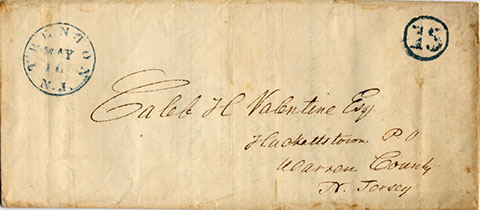 TRENTON
MAY
N.J.
15
Caleb H Valentine Esq
Hacketts town P O
Warren County
N. Jersey